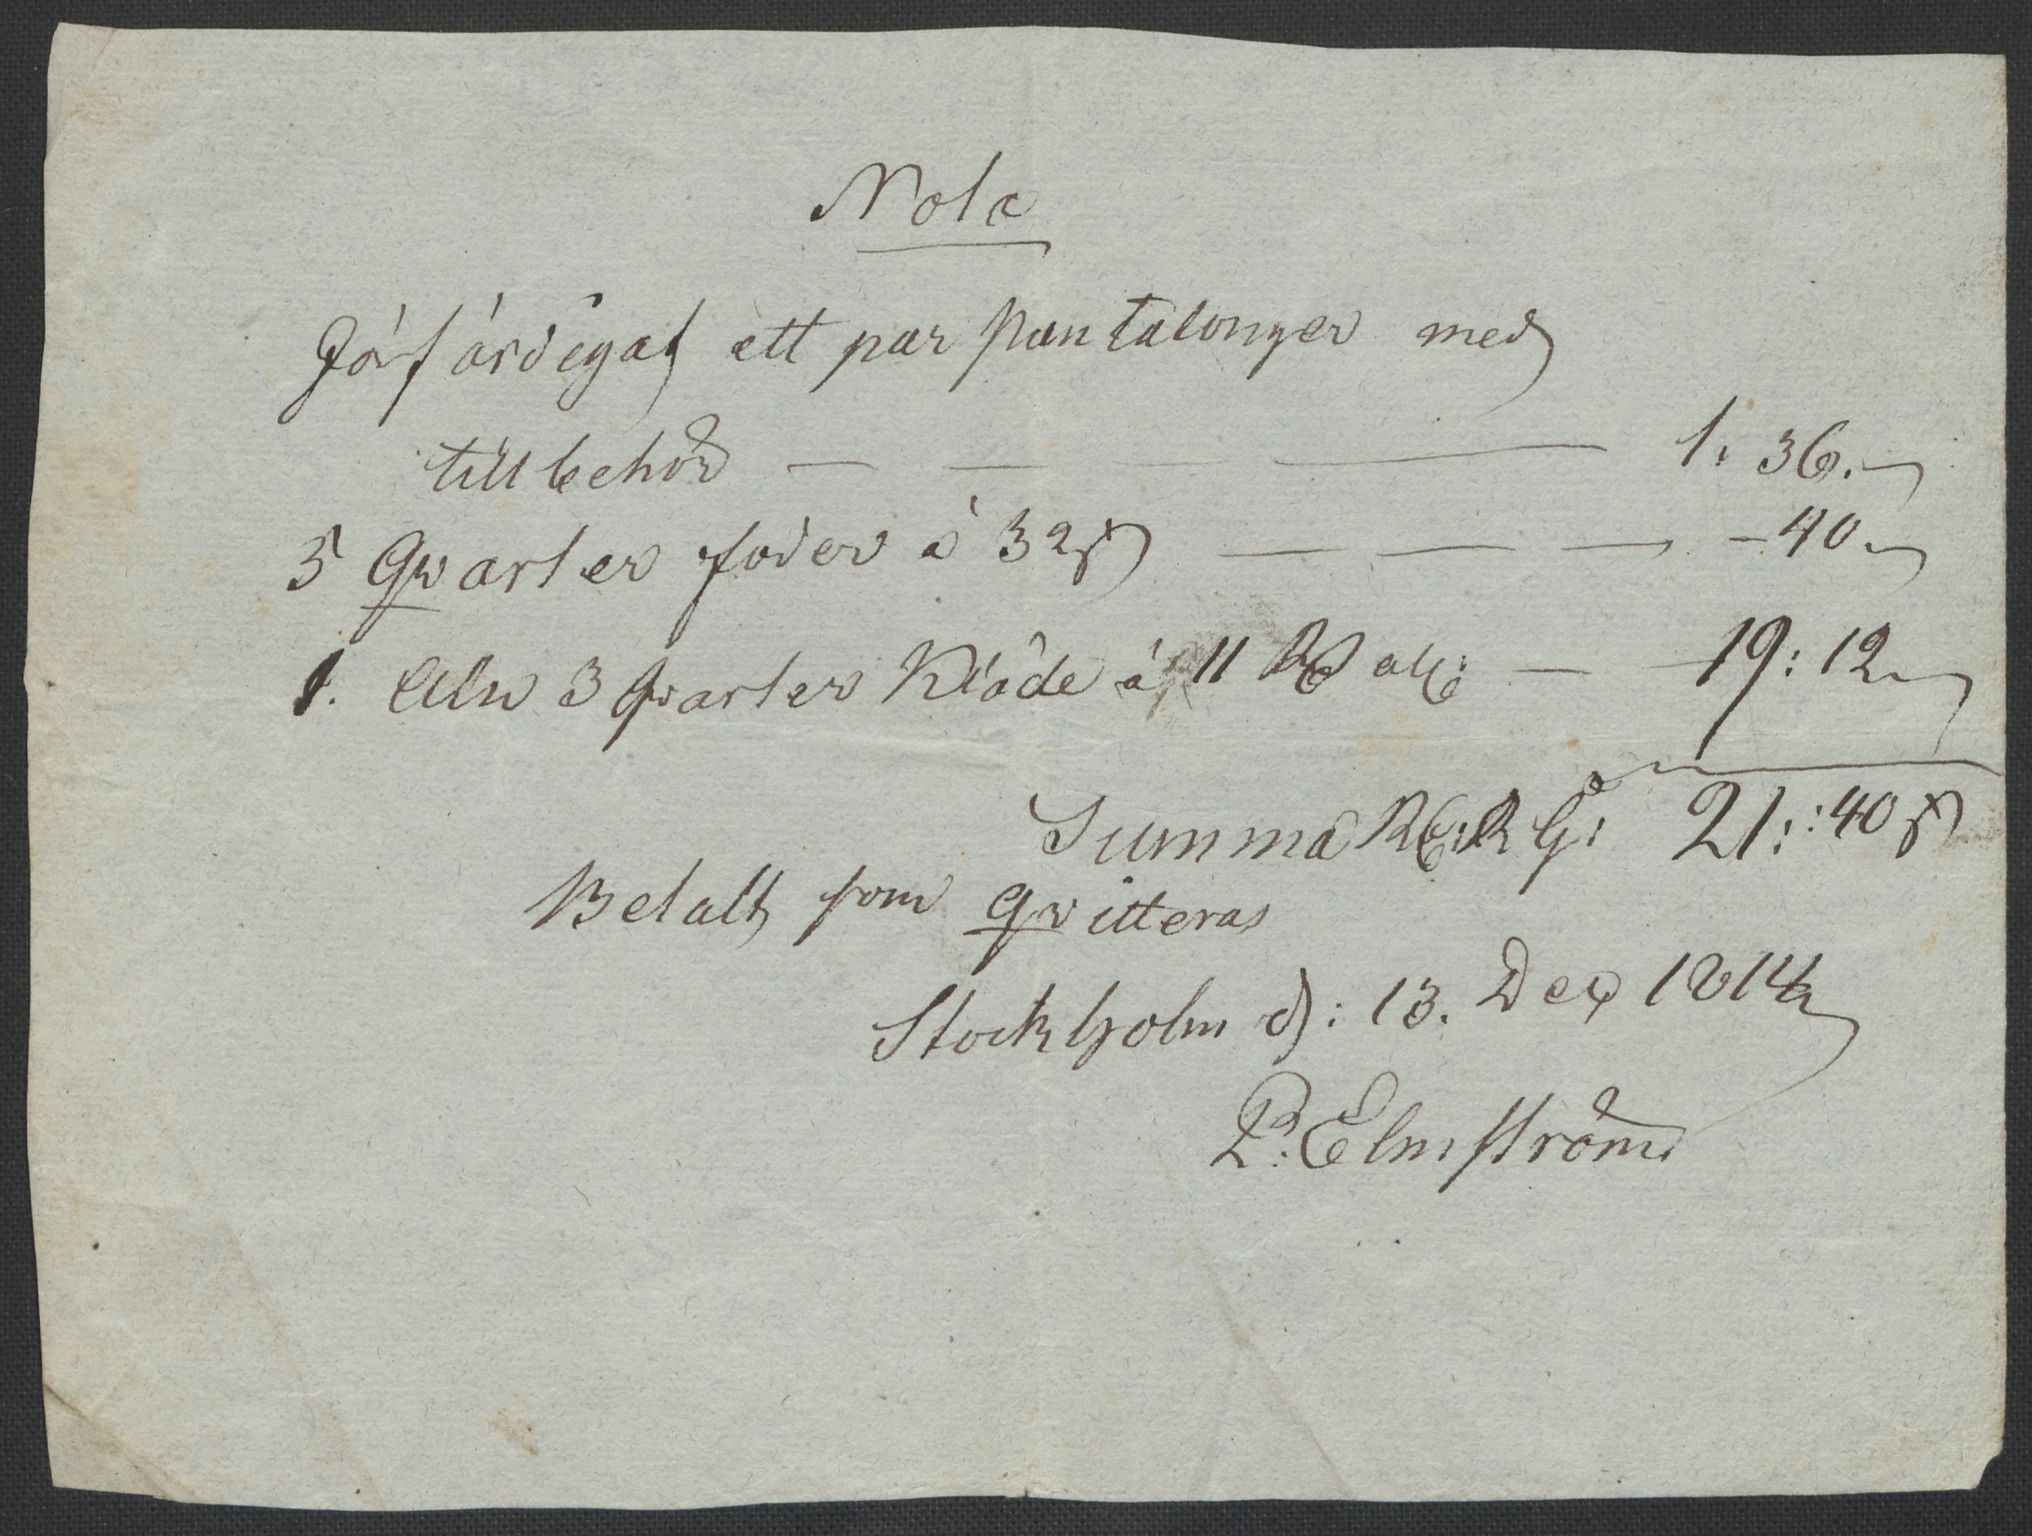 Nota
Förfärdigat ett par Pantalonger med
tillbehör — — — — 1: 36.
5 Qvarter foder á 32 ß — — — - 40
1. Aln 3 qvarter Kläde á 11 Rd al: — 19: 12
Summa Rd: R G: 21: 40 ß
Betalt som qvitteras
Stockholm d: 13. Dec 1814
P: Elmström